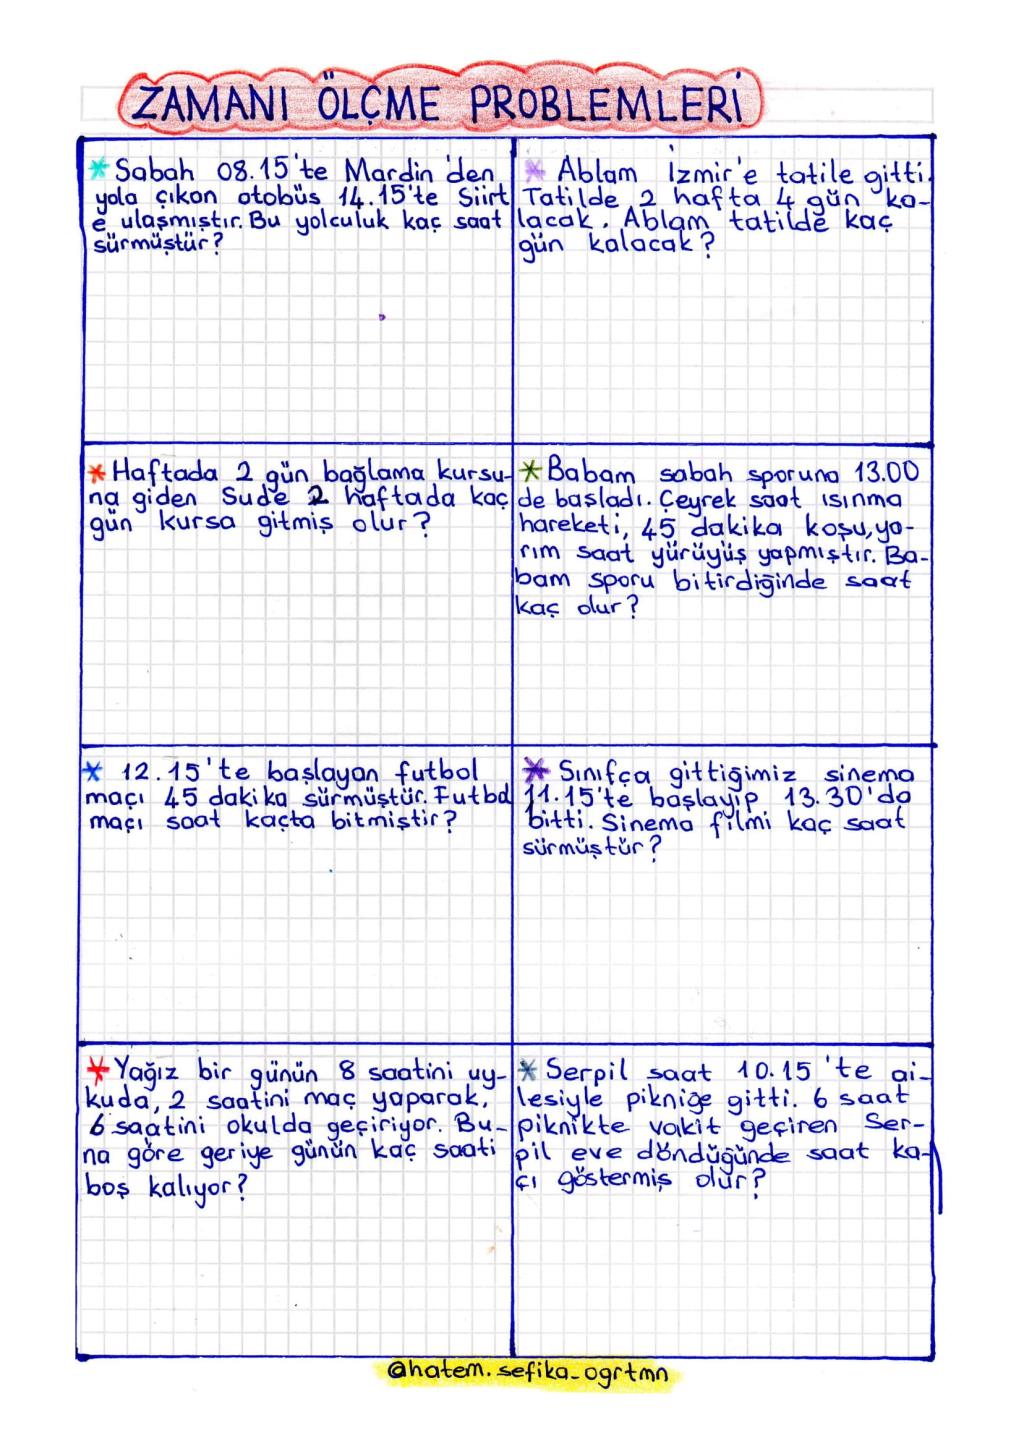 ZAMANI ÖLÇME PROBLEMLERİ
* Sabah 08.15'te Mardin'den
yola çıkan otobüs 14.15'te Siirt
e ulaşmıştır. Bu yolculuk kaç saat
sürmüştür?
* Ablam İzmir'e tatile gitti.
Tatilde 2 hafta 4 gün ka-
lacak. Ablam tatilde kaç
gün kalacak?
* Haftada 2 gün bağlama kursu-
na giden Sude 2 haftada kaç
gün kursa gitmiş olur?
* Babam sabah sporuna 13.00
de başladı. Çeyrek saat ısınma
hareketi, 45 dakika koşu, ya-
rım saat yürüyüş yapmıştır. Ba-
bam sporu bitirdiğinde saat
kaç olur?
* 12.15'te başlayan futbol
maçı 45 dakika sürmüştür. Futbol
maçı saat kaçta bitmiştir?
* Sınıfça gittiğimiz sinema
11.15'te başlayıp 13.30'da
bitti. Sinema filmi kaç saat
sürmüştür?
* Yağız bir günün 8 saatini uy-
kuda, 2 saatini maç yaparak,
6 saatini okulda geçiriyor. Bu-
na göre geriye günün kaç saati
boş kalıyor?
* Serpil saat 10.15'te ai-
lesiyle pikniğe gitti. 6 saat
piknikte vakit geçiren Ser-
pil eve döndüğünde saat ka-
çı göstermiş olur?
@hatem.sefika_ogrtmn